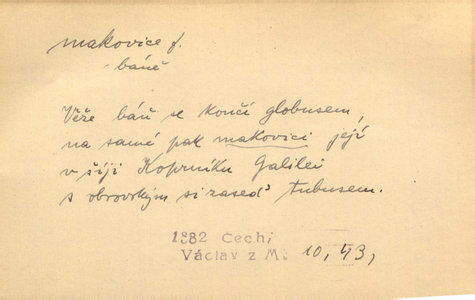 makovice f.
báně
Věže báň se končí globusem,
na samé pak makovici její
v šíji Koprníku Galilei
s obrovským si zased' tubusem.
1882 Čech,
Václav z M. 10, 43,